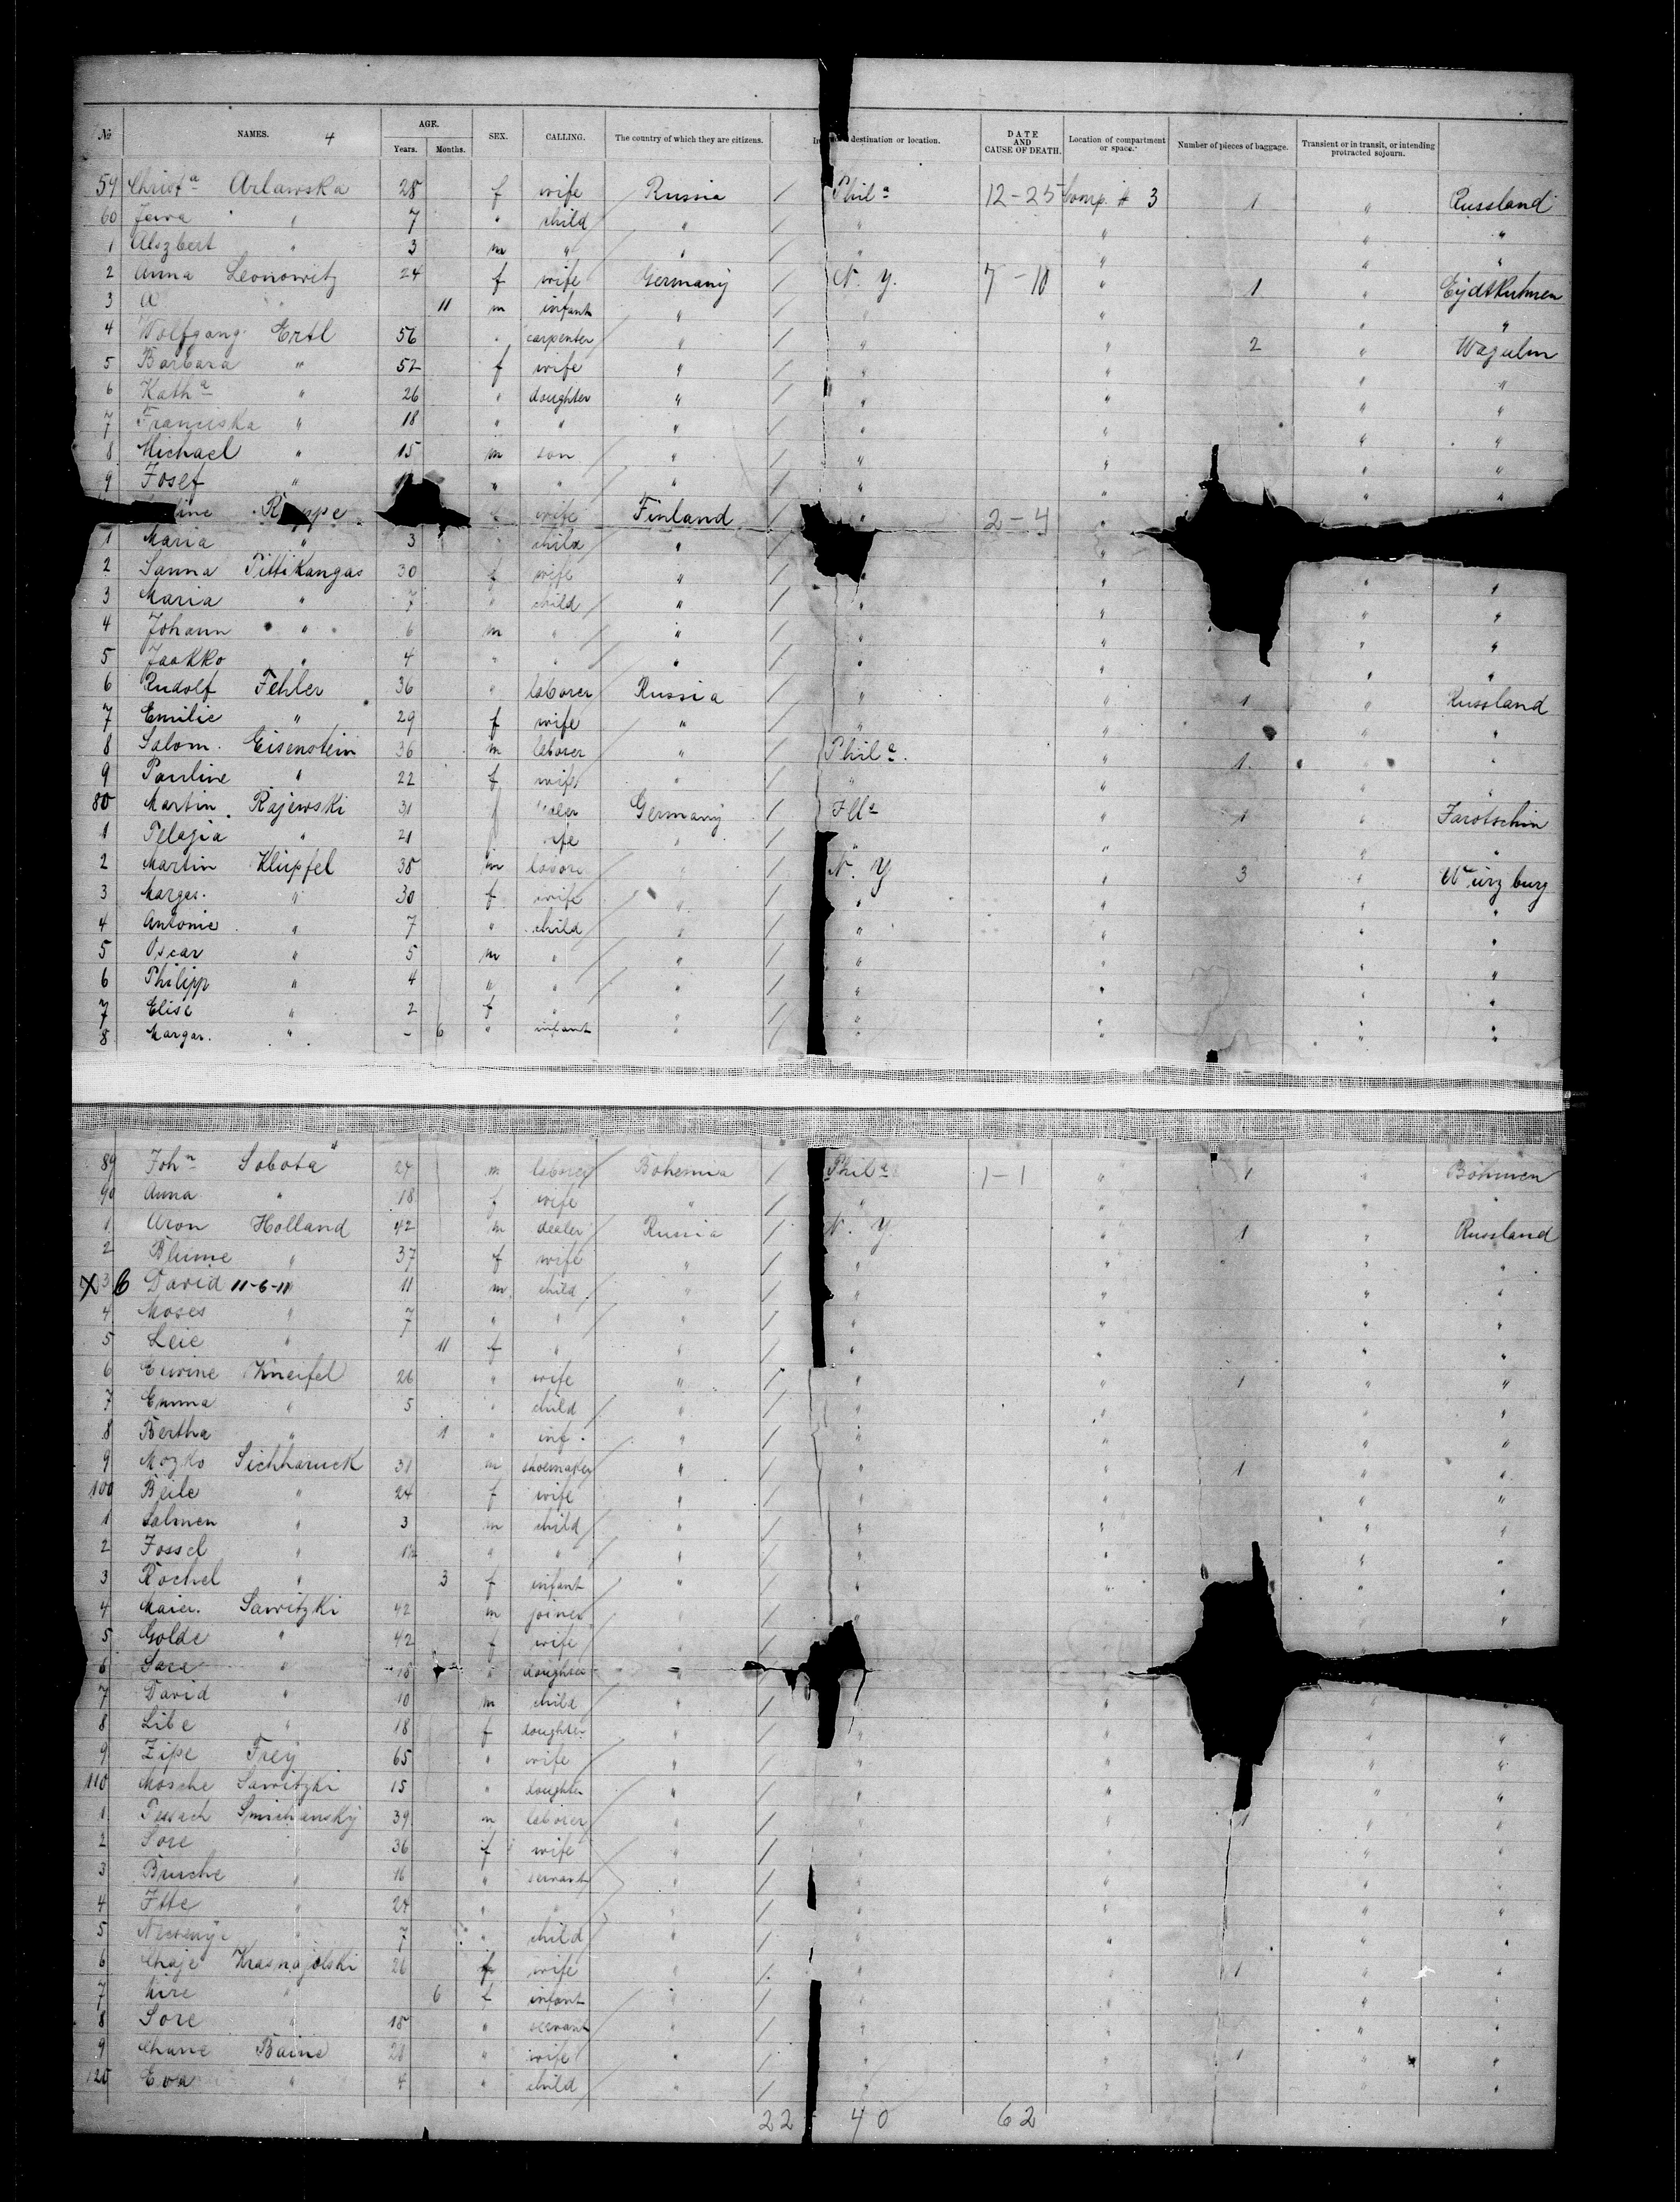 № NAMES. 4 AGE. Years. Months. SEX. CALLING. The country of which they are citizens. destination or location. DATE AND CAUSE OF DEATH. Location of compartment or space. Number of pieces of baggage. Transient or in transit, or intending protracted sojourn.
59 Christa Arlawska 28 f wife Russia / Phila 12-25 Comp. # 3 1 " Russland
60 " 7 " child " / " " " "
1 " 3 m " " / " " " "
2 Anna Leonowitz 24 f wife Germany / N. Y. 7-10 " 1 " Eydtkuhnen
3 " 11 m infant " " " " "
4 Wolfgang Ertl 56 " carpenter " / " " 2 "
5 Barbara " 52 f wife " / " " " "
6 Katha " 26 " doughter " / " " " "
7 Franciska " 18 " " " / " " " "
8 Michael " 15 m son " / " " " "
9 Josef " " " " / " " "
wife Finland / " 2-4 "
1 Maria " 3 " child " / "
2 Sanna Pittikangas 30 f wife " / " " " "
3 Maria " 7 " child " / " " "
4 Johann " 6 m " " / " " " "
5 Jaakko " 4 " " " / " " " "
6 Rudolf Fehler 36 " laborer Russia / " " 1 " Russland
7 Emilie " 29 f wife " / " " " "
8 Salom. Eisenstein 36 m laborer " / Phila. " 1 "
9 Pauline " 22 f wife " / " " " "
80 Martin Rajewski 31 Germany / Ills " 1 " Jarotschin
1 Pelagia " 21 wife " / " " " "
2 Martin Klüpfel 35 m " / N. Y " 3 " Würzburg
3 Margar. " 30 f wife " / " " " "
4 Antonie " 7 " child " / " " " "
5 Oscar " 5 m " " / " " " "
6 Philipp " 4 " " " / " " " "
7 Elise " 2 f " " / " " " "
8 Margar. " - 6 " infant " / " " " "
89 John Sobota 24 m laborer Bohemia / Phila 1-1 " 1 " Böhmen
90 Anna " 18 f wife " / " " " "
1 Aron Holland 42 m dealer Russia / N. Y. " 1 " Russland
2 Blume " 37 f wife " / " " " "
X 3 6 David 11-6-11 " 11 m child " / " " " "
4 Moses " 7 " " " / " " " "
5 Leie " 11 f " " / " " "
6 Kneifel 26 " wife " / " " 1 " "
7 Emma " 5 " child " / " " " "
8 Bertha " 1 " inf. " / " " " "
9 Sichharuck 31 m shoemaker " / " " 1 " "
100 Beile " 24 f wife " / " " " "
1 Salmen " 3 m child " / " " " "
2 Jossel " " " " / " " " "
3 Rochel " 3 f infant " / " " " "
4 Maier. Sawitzki 42 m joiner " / " " "
5 Golde " 42 f wife " /
6 Sare " 18 " doughter " "
7 David " 10 m child " / " " "
8 Libe " 18 f doughter " / " " " "
9 Zipe Frey 65 " wife " / " " " "
110 Mosche Sawitzki 15 " doughter " / " " " "
1 39 m laborer " / " " 1 " "
2 Sore 36 f wife " / " " " "
3 Bruche " 16 " servant " / " " " "
4 Itte " 24 " " " / " " " "
5 " 7 " child " / " " " "
6 Chaje Krasnajolski 26 f wife " / " " 1 " "
7 " 6 f infant " / " " " "
8 Sore " 18 " servant " / " " " "
9 Chane 28 " wife " / " " 1 " "
120 Eva " 4 " child " / " " " "
22 40 62